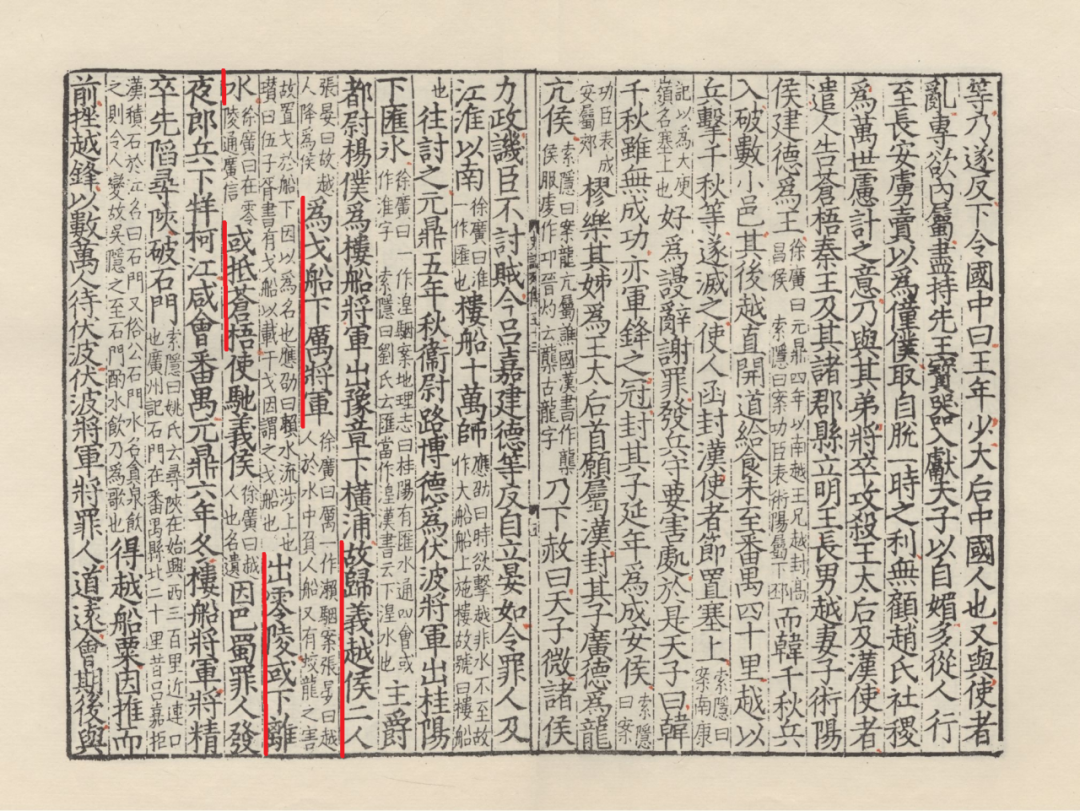 等乃遂反下令國中曰王年少太后中國人也又與使者
亂專欲內屬盡持先王寶器入獻天子以自媚多從人行
至長安虜賣以為僮僕取自脫一時之利無顧趙氏社稷
為萬世慮計之意乃與其弟將卒攻殺王太后及漢使者
遣人告蒼梧秦王及其諸郡縣立明王長男越妻子術陽
侯建德為王徐廣曰元鼎四年以南越王兄越封高昌侯索隱曰案功臣表術陽屬下邳而韓千秋兵
入破數小邑其後越直開道給食未至番禺四十里越以
兵擊千秋等遂滅之使人函封漢使者節置塞上索隱曰案南康
記以為大庾嶺名塞上也好為謾辭謝罪發兵守要害處於是天子曰韓
千秋雖無成功亦軍鋒之冠封其子延年為成安侯索隱曰案
功臣表成安屬郟樛樂其姊為王太后首願屬漢封其子廣德為龍
亢侯索隱曰案龍亢屬譙國漢書作龒侯服虔作卭晉灼云龒古龍字乃下赦曰天子微諸侯
力政譏臣不討賊今呂嘉建德等反自立晏如令罪人及
江淮以南徐廣曰淮一作匯也樓船十萬師應劭曰時欲擊越非水不至故作大船船上施樓故號曰樓船
也往討之元鼎五年秋衞尉路博德為伏波將軍出桂陽
下匯水徐廣曰一作湟駰案地理志曰桂陽有匯水通四會或作淮字索隱曰劉氏云匯當作湟漢書云下湟水也主爵
都尉楊僕為樓船將軍出豫章下橫浦故歸義越侯二人
張晏曰故越人降為侯為戈船下厲將軍徐廣曰厲一作瀨駰案張晏曰越人於水中負人船又有蛟龍之害
故置戈於船下因以為名也應劭曰瀨水流涉上也瓚曰伍子胥書有戈船以載干戈因謂之戈船也出零陵或下離
水徐廣曰在零陵通廣信或抵蒼梧使馳義侯徐廣曰越人也名遺因巴蜀罪人發
夜郎兵下牂柯江咸會番禺元鼎六年冬樓船將軍將精
卒先陷尋陜破石門索隱曰姚氏云尋陜在始興西三百里近連口也廣州記石門在番禺縣北二十里昔呂嘉拒
漢積石於江名曰石門又俗云石門水名貪泉飲之則令人變故吳隱之至石門酌水飲乃為歌也得越船粟因推而
前挫越鋒以數萬人待伏波伏波將軍將罪人道遠會期後與